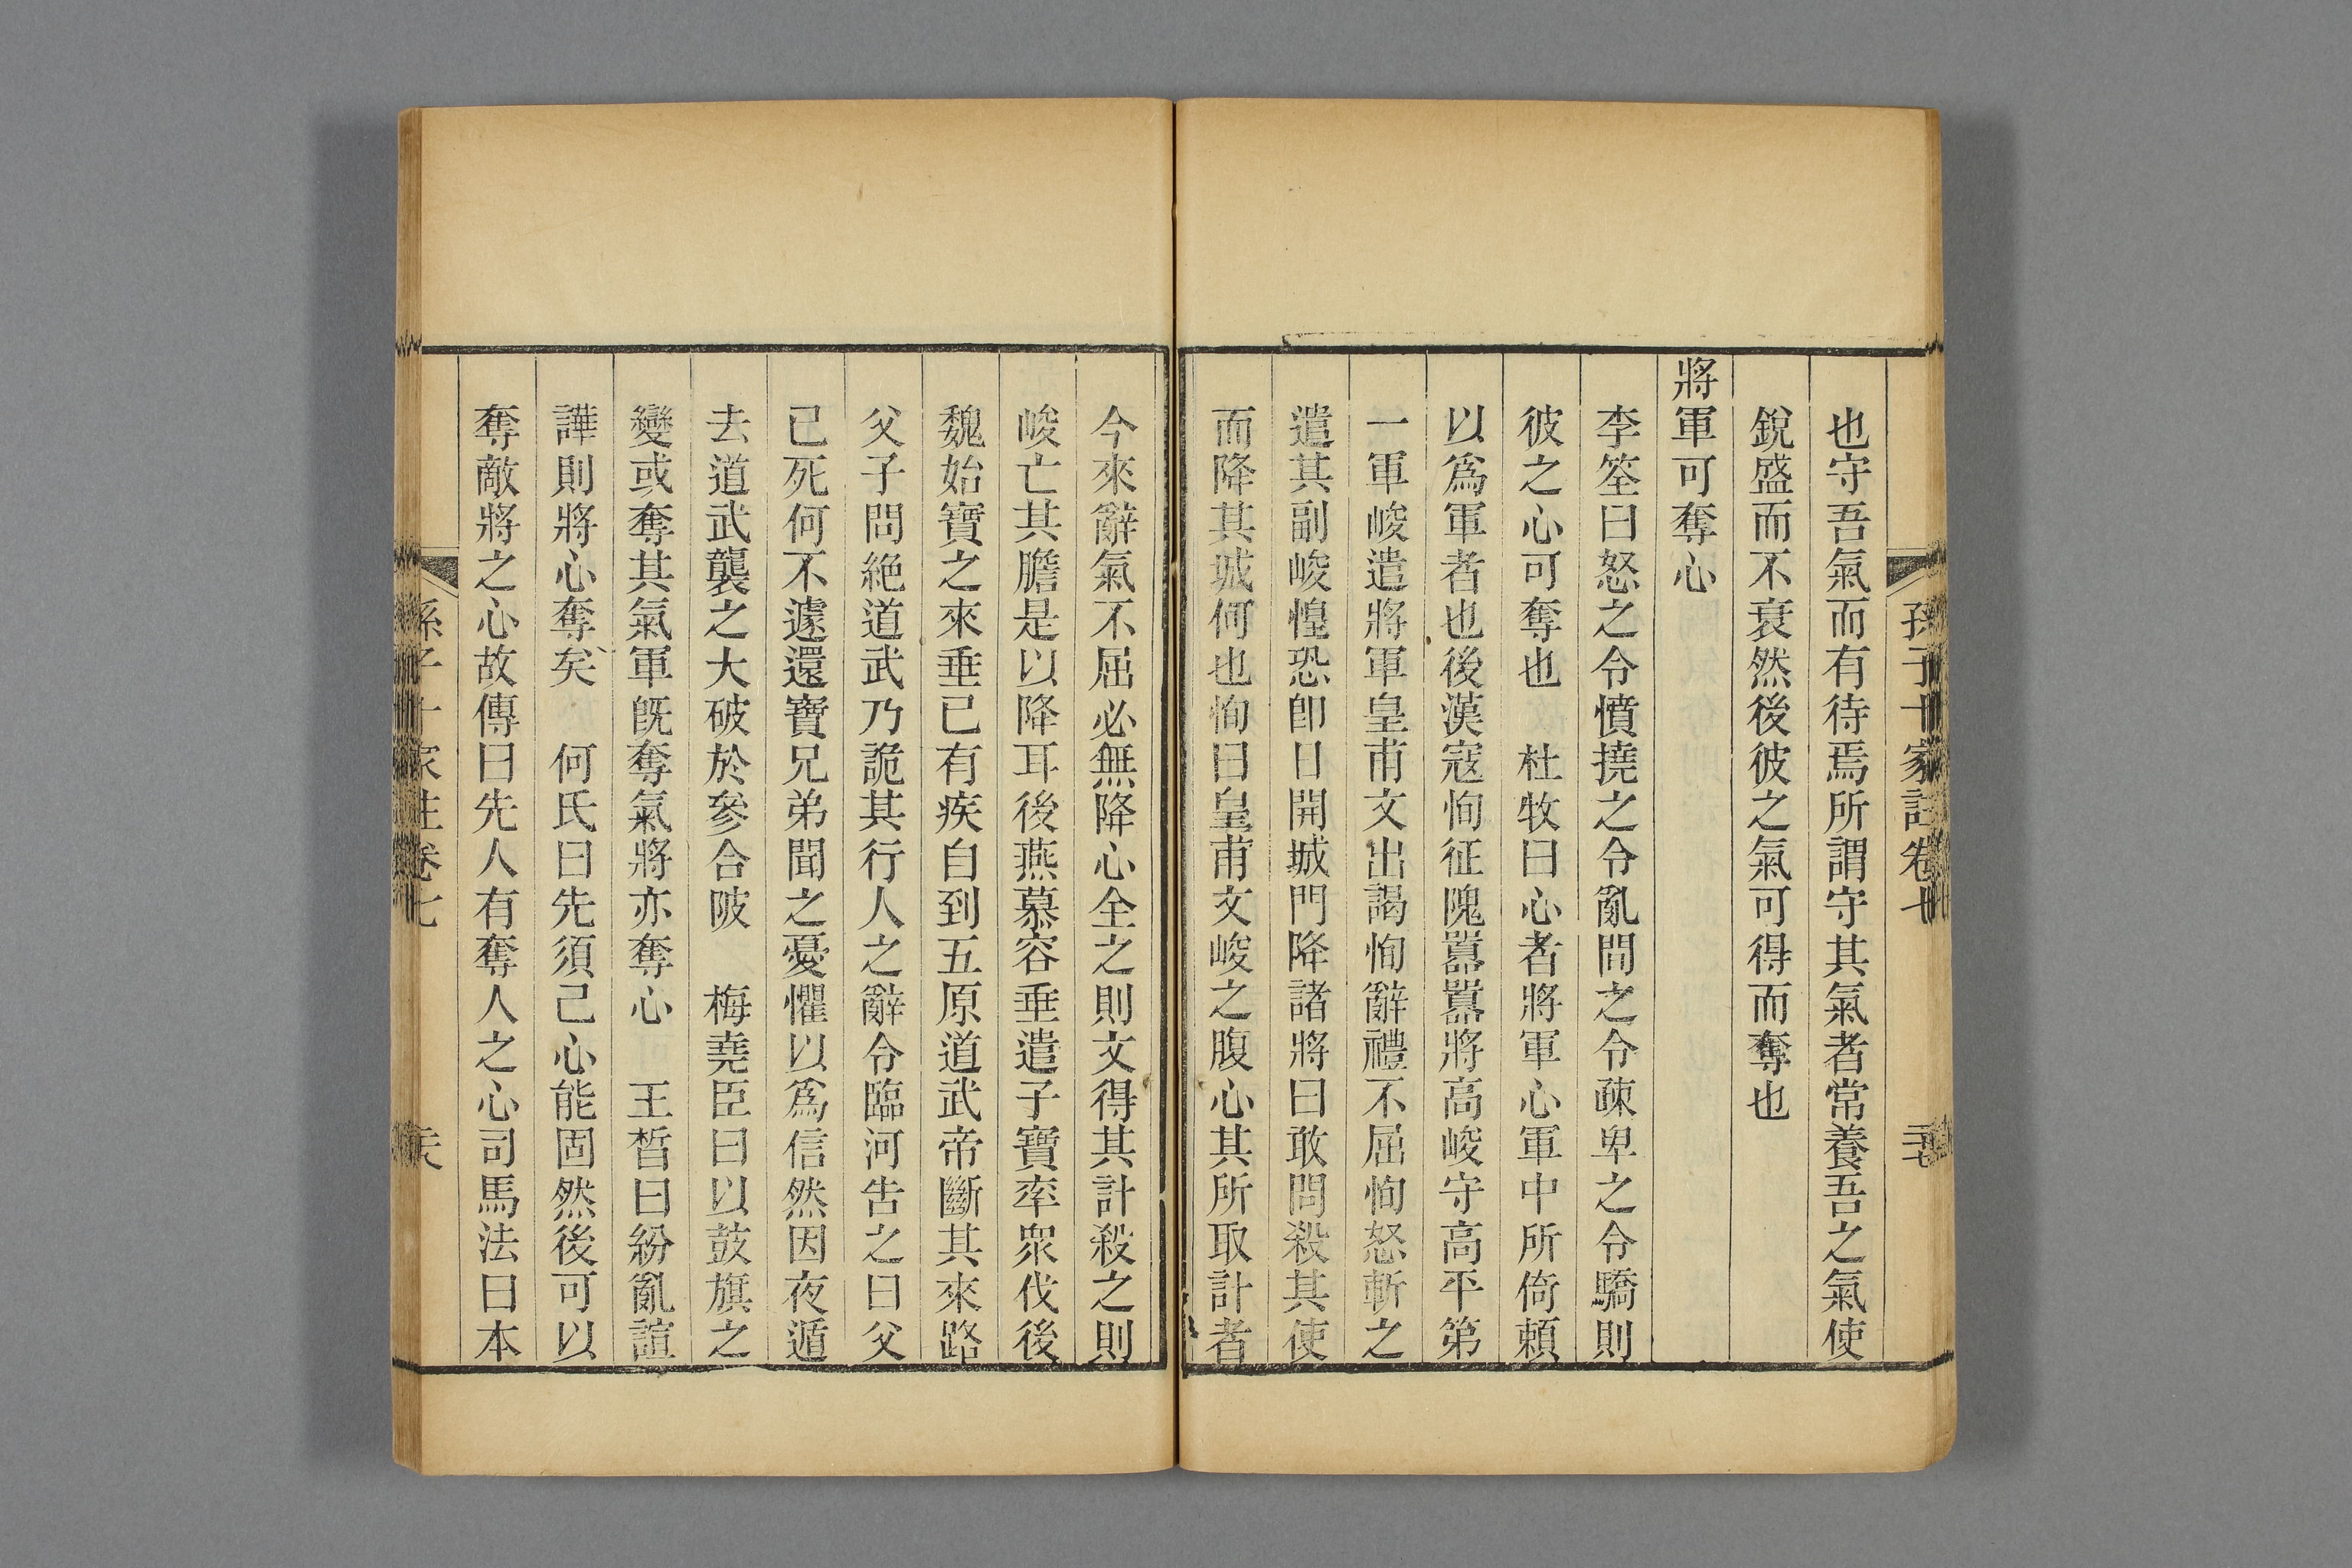 孫子十家註卷七
二七
也守吾氣而有待焉所謂守其氣者常養吾之氣使
銳盛而不衰然後彼之氣可得而奪也
將軍可奪心
李筌曰怒之令憤撓之令亂間之令疎卑之令驕則
彼之心可奪也 杜牧曰心者將軍心軍中所倚賴
以爲軍者也後漢寇恂征隗囂囂將高峻守高平第
一軍峻遣將軍皇甫文出謁恂辭禮不屈恂怒斬之
遣其副峻惶恐卽日開城門降諸將曰敢問殺其使
而降其城何也恂曰皇甫文峻之腹心其所取計者
今來辭氣不屈必無降心全之則文得其計殺之則
峻亡其膽是以降耳後燕慕容垂遣子寶率眾伐後
魏始寶之來垂已有疾自到五原道武帝斷其來路
父子問絶道武乃詭其行人之辭令臨河告之曰父
已死何不遽還寶兄弟聞之憂懼以爲信然因夜遁
去道武襲之大破於參合陂 梅堯臣曰以鼓旗之
變或奪其氣軍旣奪氣將亦奪心 王晳曰紛亂諠
譁則將心奪矣 何氏曰先須己心能固然後可以
奪敵將之心故傳曰先人有奪人之心司馬法曰本
孫子十家註卷七